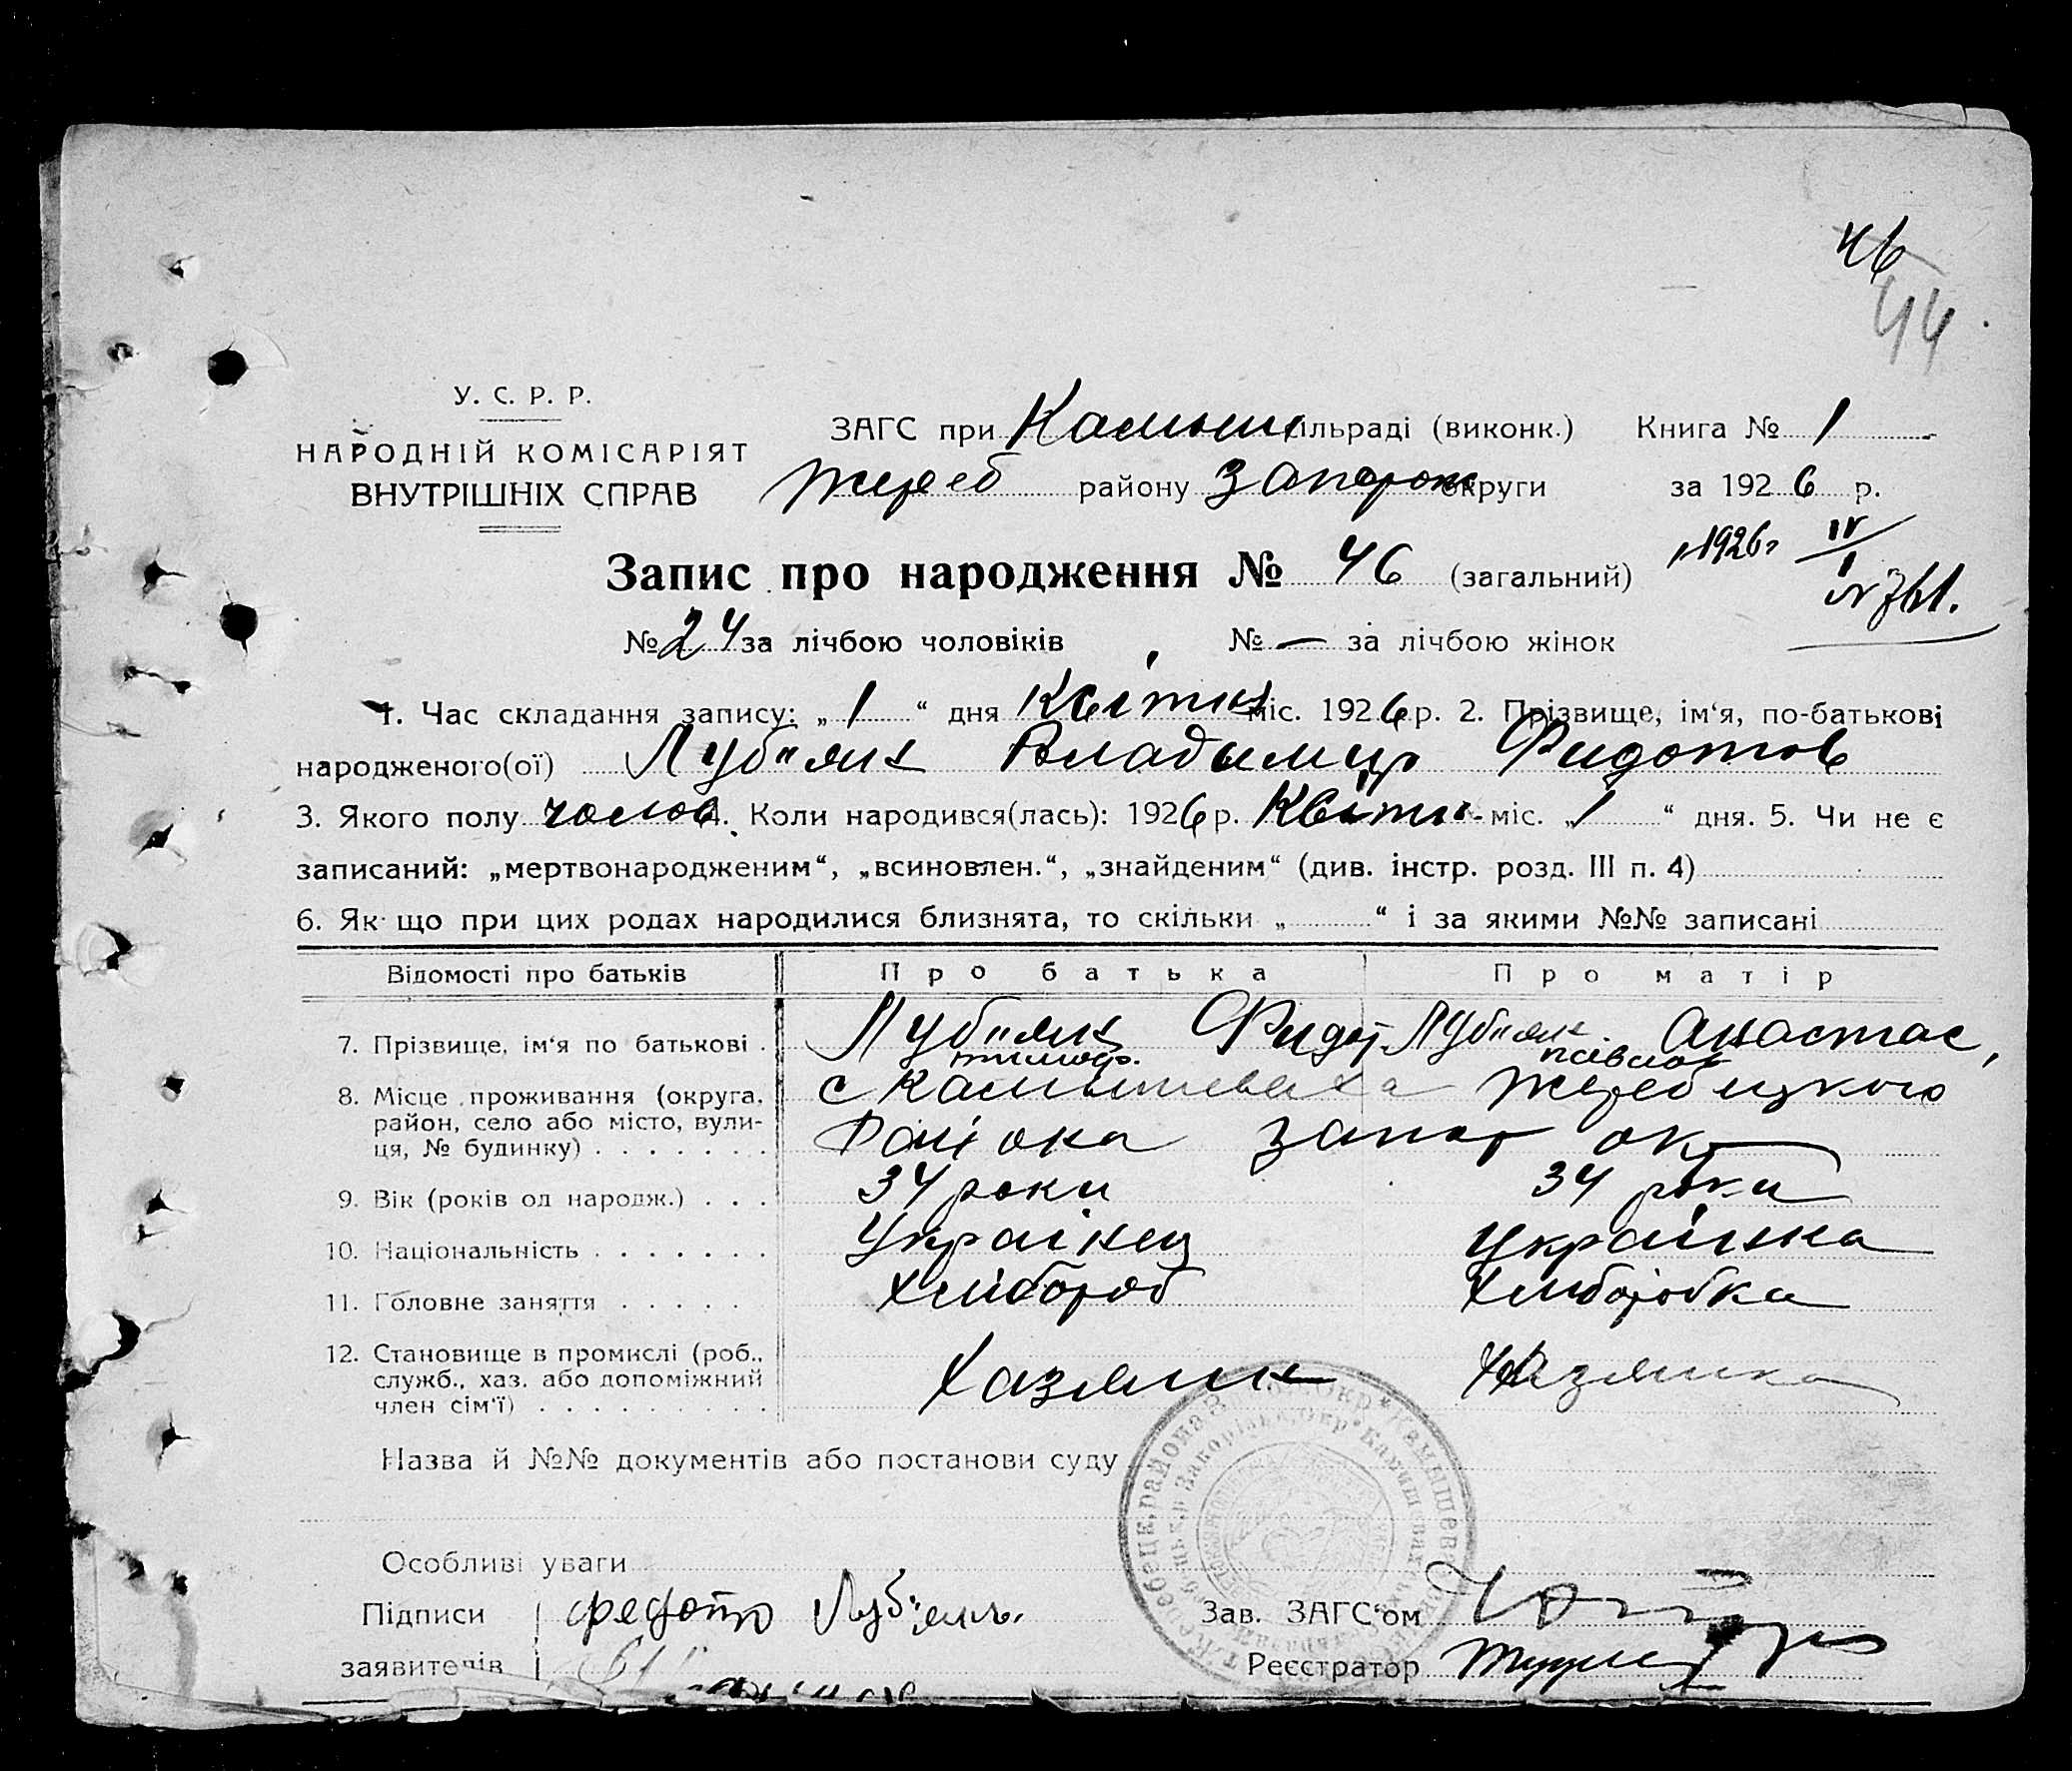 46
44
У. С. Р. Р.
НАРОДНІЙ КОМІСАРІЯТ
ВНУТРІШНІХ СПРАВ
ЗАГС при Камыш сільраді (виконк.) Книга № 1
Жереб району Запорож округи за 1926 р.
Запис про народження № 46 (загальний)
1926 IV/1
№ 761.
№ 24 за лічбою чоловіків № — за лічбою жінок
1. Час складання запису: „1“ дня Квітня міс. 1926 р. 2. Прізвище, ім‘я, по-батькові
народженого(ої) Луб"янк Владымир Фидотов
3. Якого полу чолов. 4. Коли народився(лась): 1926 р. Квітн. міс. „1“ дня. 5. Чи не є
записаний: „мертвонародженим“, „всиновлен.“, „знайденим“ (див. інстр. розд. III п. 4)
6. Як що при цих родах народилися близнята, то скільки „ “ і за якими №№ записані
Відомості про батьків Про батька Про матір
7. Прізвище, ім‘я по батькові . Луб"янк Фидот Луб"янк Анастас,
тимоф. павлов
8. Місце проживання (округа, с Камышеваха Жеребецкого
район, село або місто, вули-
ця, № будинку) . . . . . . . Району Запор ок
9. Вік (років од народж.) . . . 34 роки 34 роки
10. Національність . . . . . . . Українец Українка
11. Головне заняття . . . . . Хлибороб Хлиборобка
12. Становище в промислі (роб.,
служб., хаз. або допоміжний Хазяин Хазяика
член сім‘ї) . . . . . . . . .
Назва й №№ документів або постанови суду
Особливі уваги
Підписи Федотъ
Зав. ЗАГС‘ом
заявителів
Реєстратор